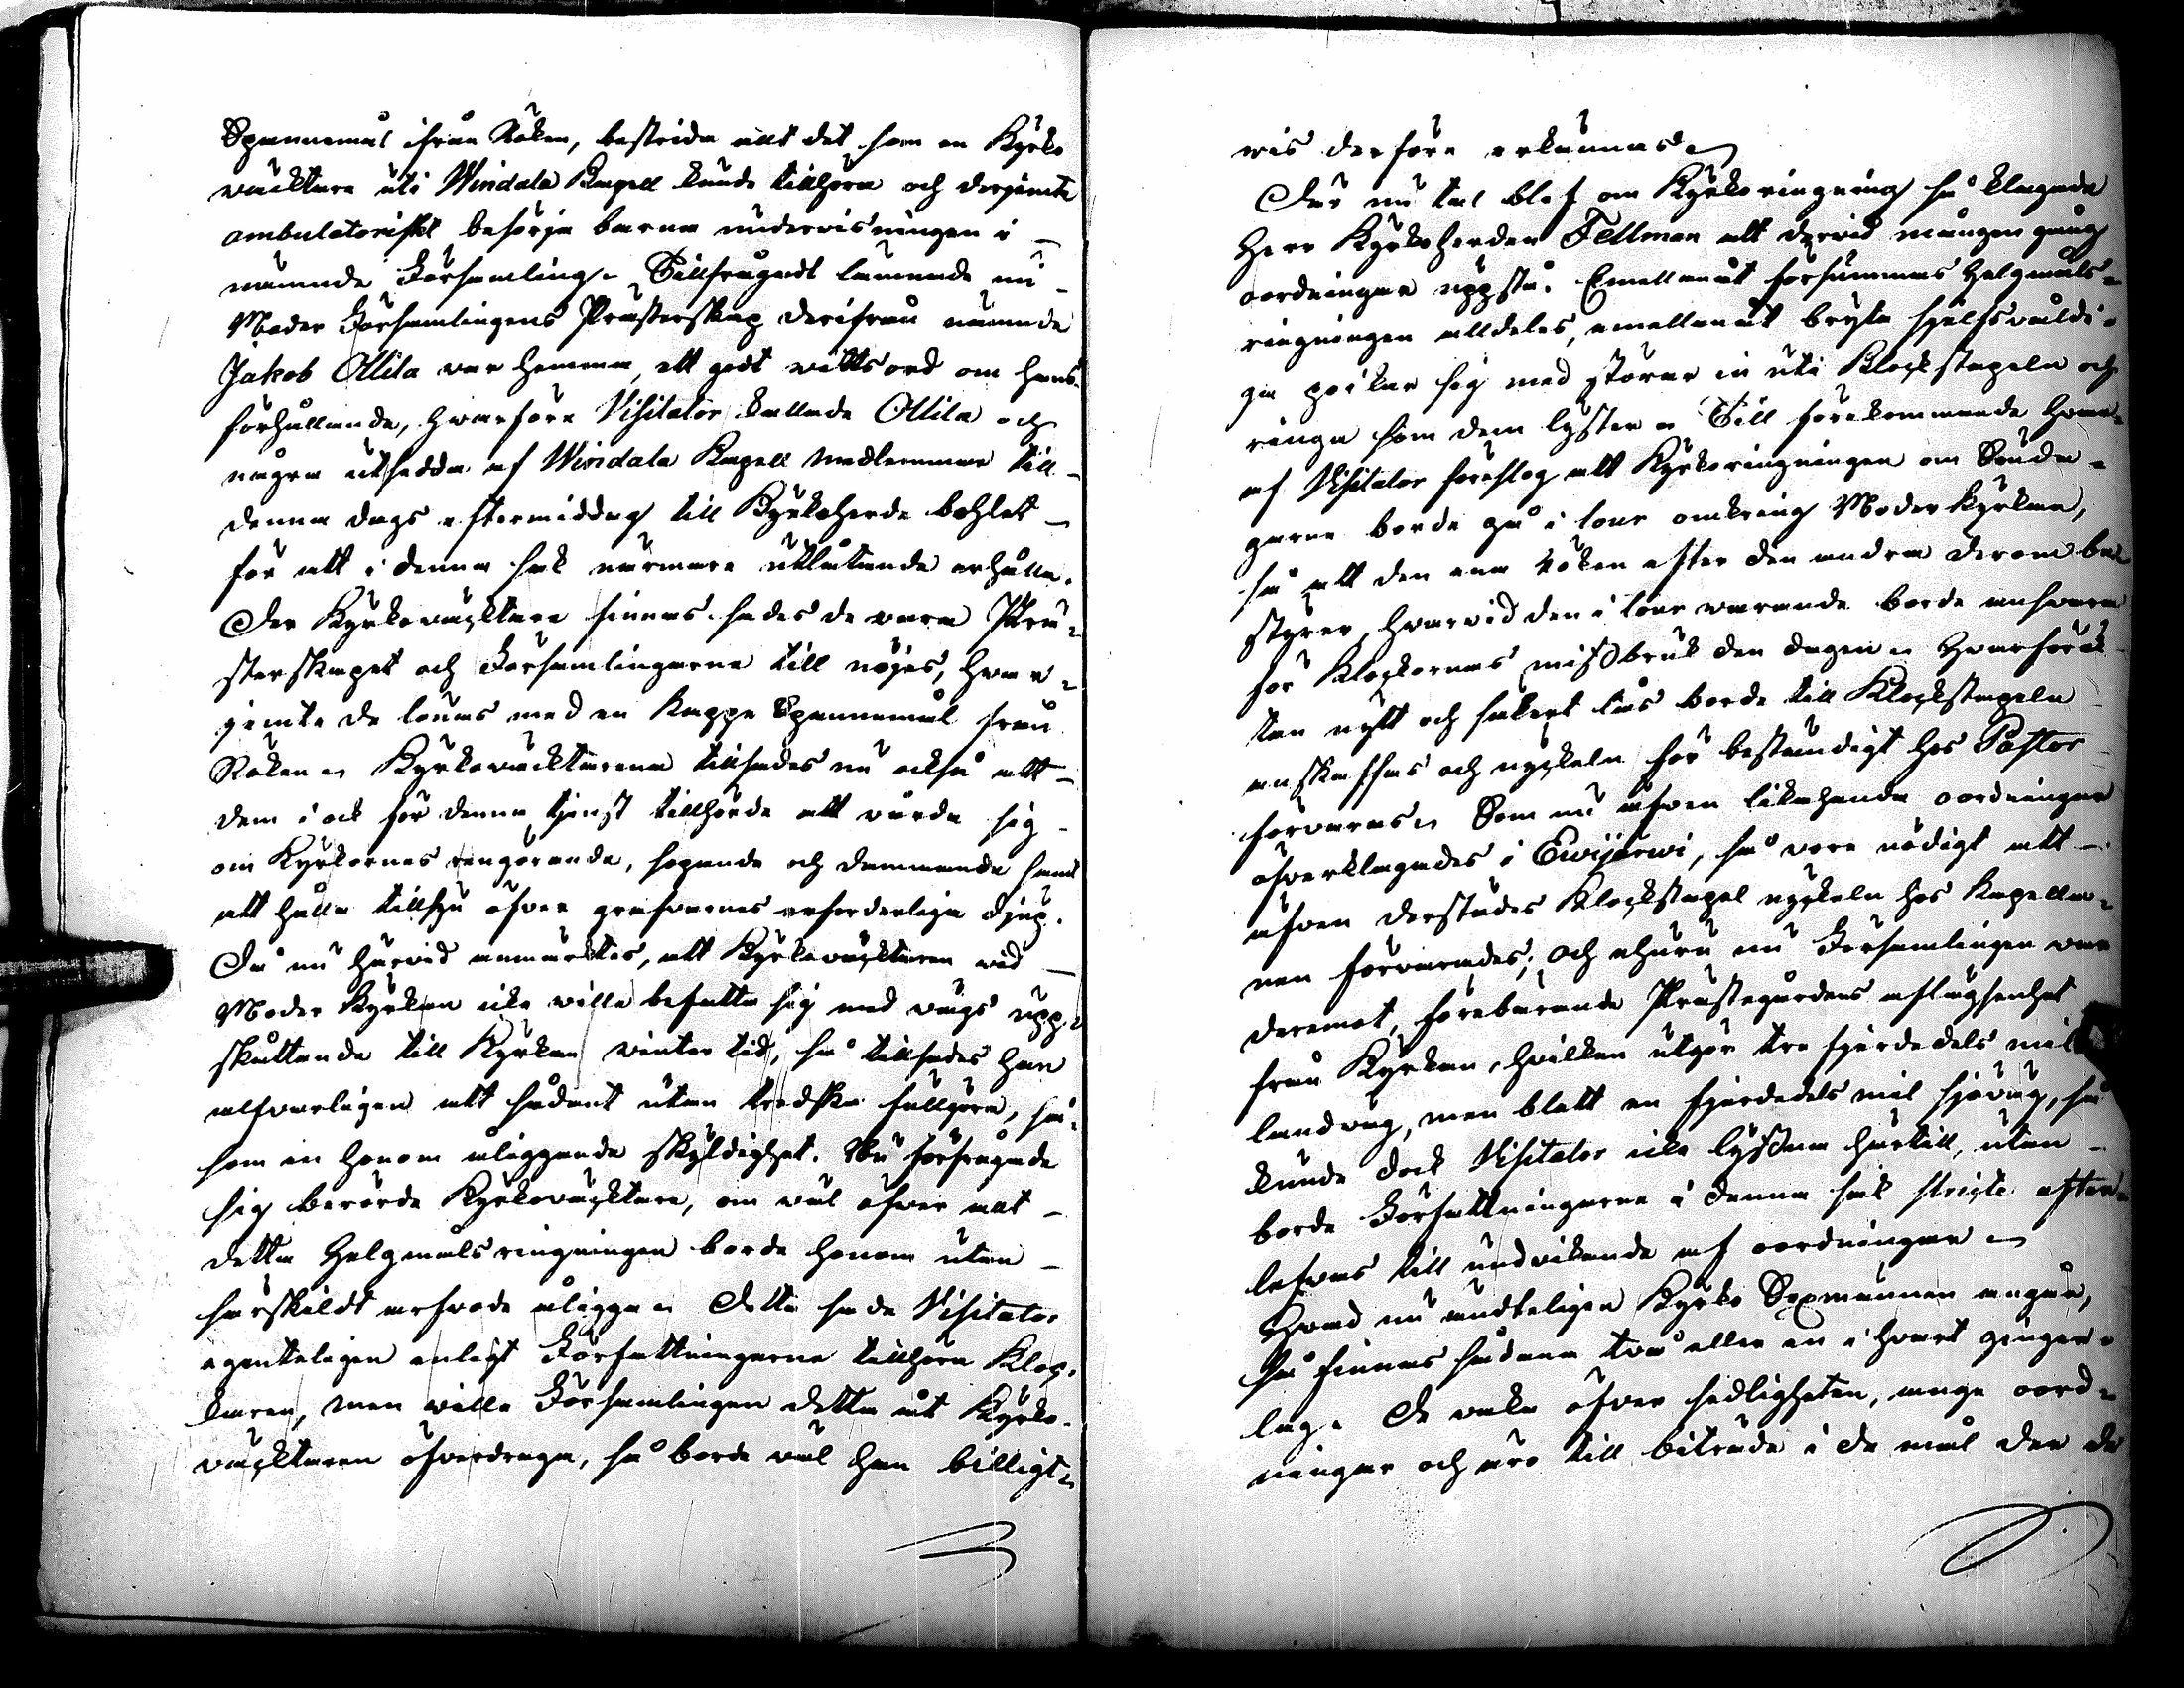 Spannemål ifrån Röken, bestrida allt det som en Kyrko
wäcktare uti Windala Kapell kunde tillhöra och derjemte
ambulatoriskt besörja barna undervisningen i
nämnde Församling. Tillfrågadt lämnade nu
Moder Församlingens Prästerskap derifrån nämnde
Jakob Ollila var hemma, ett godt wittsord om hans
förhållande, hwarföre Visitator kallade Ollila och
några utsedda af Windala Kapell medlemmar till
denna dags eftermiddag till Kyrkoherde bohlet
för att i denna sak närmare utlåtande erhålla.
Der Kyrkowäcktare finnas sades de vara Prä-
sterskapet och Församlingarne till nöjes, hwar-
jemte de lönas med en Kappe Spannemål från
Röken. Kyrkowäcktarena tillsades nu också att
dem i ock för denna tjenst tillhörde att vårda sig
om Kyrkornas rengörande, sopande och dammande samt
att hålla tillsyn öfver grafvarnes erforderliga djup.
Då nu härvid anmärktes, att Kyrkowäcktaren vid
Moder Kyrkan icke wille befatta sig med vägs upp-
skottande till Kyrkan vinter tid, så tillsades han
alfvarligen att sådant utan tredska fullgöra, så-
som en honom åliggande skyldighet. Nu förfrågade
sig berörde Kyrkowäcktare, om väl öfver allt
detta Helgmåls ringningen borde honom utan
särskildt arfvode åligga. Detta sade Visitator
egenteligen enligt Författningarne tillhöra Kloc-
karen, men wille Församlingen detta åt Kyrko-
väcktaren öfverdraga, så borde väl han billigt-
vis derföre erkännas.
Der nu tal blef om Kyrkoringning så klagade
Herr Kyrkoherden Fellman att dervid mången gång
oordningar uppstå. Emellanåt försummas Helgmåls-
ringningen alldeles, emellanåt bryta sjelfsvåldi-
ga pojkar sig med störar in uti Klockstapeln och
ringa som dem lyster. Till förekommande hvar-
af Visitator föreslog att Kyrkoringningen om Sönda-
garne borde gå i tour omkring Moderkyrkan,
så att den ena röken efter den andra derom be-
styrer, hvarvid den i tour warande borde ansvara
för Klockornas missbruk den dagen. Hvarförutan
nytt och säkert lås borde till Klockstapeln
anskaffas och nyckeln för beständigt hos Pastor
förvaras. Som nu äfven likahanda oordningar
öfverklagades i Ewijärwi, så vore nödigt att
äfven derstädes Klockstapel nyckeln hos Kapella-
nen förvarades; och ehuru nu Församlingen var
deremot, föreburande Prästegårdens aflägsenhet
från Kyrkan, hvilken utgör tre fjerdedels mil
landväg, men blott en fjerdedels mil sjöväg, så
kunde dock Visitator icke lyssna härtill, utan
borde Författningarne i denna sak stricte efter-
lefvas till undvikande af oordningar.
Hvad nu ändteligen Kyrko Sexmännen angår,
så finnas sådana två eller en i hvart gingär-
lag. De vaka öfver sedligheten, ange oord-
ningar och äro till biträde i de mål der de